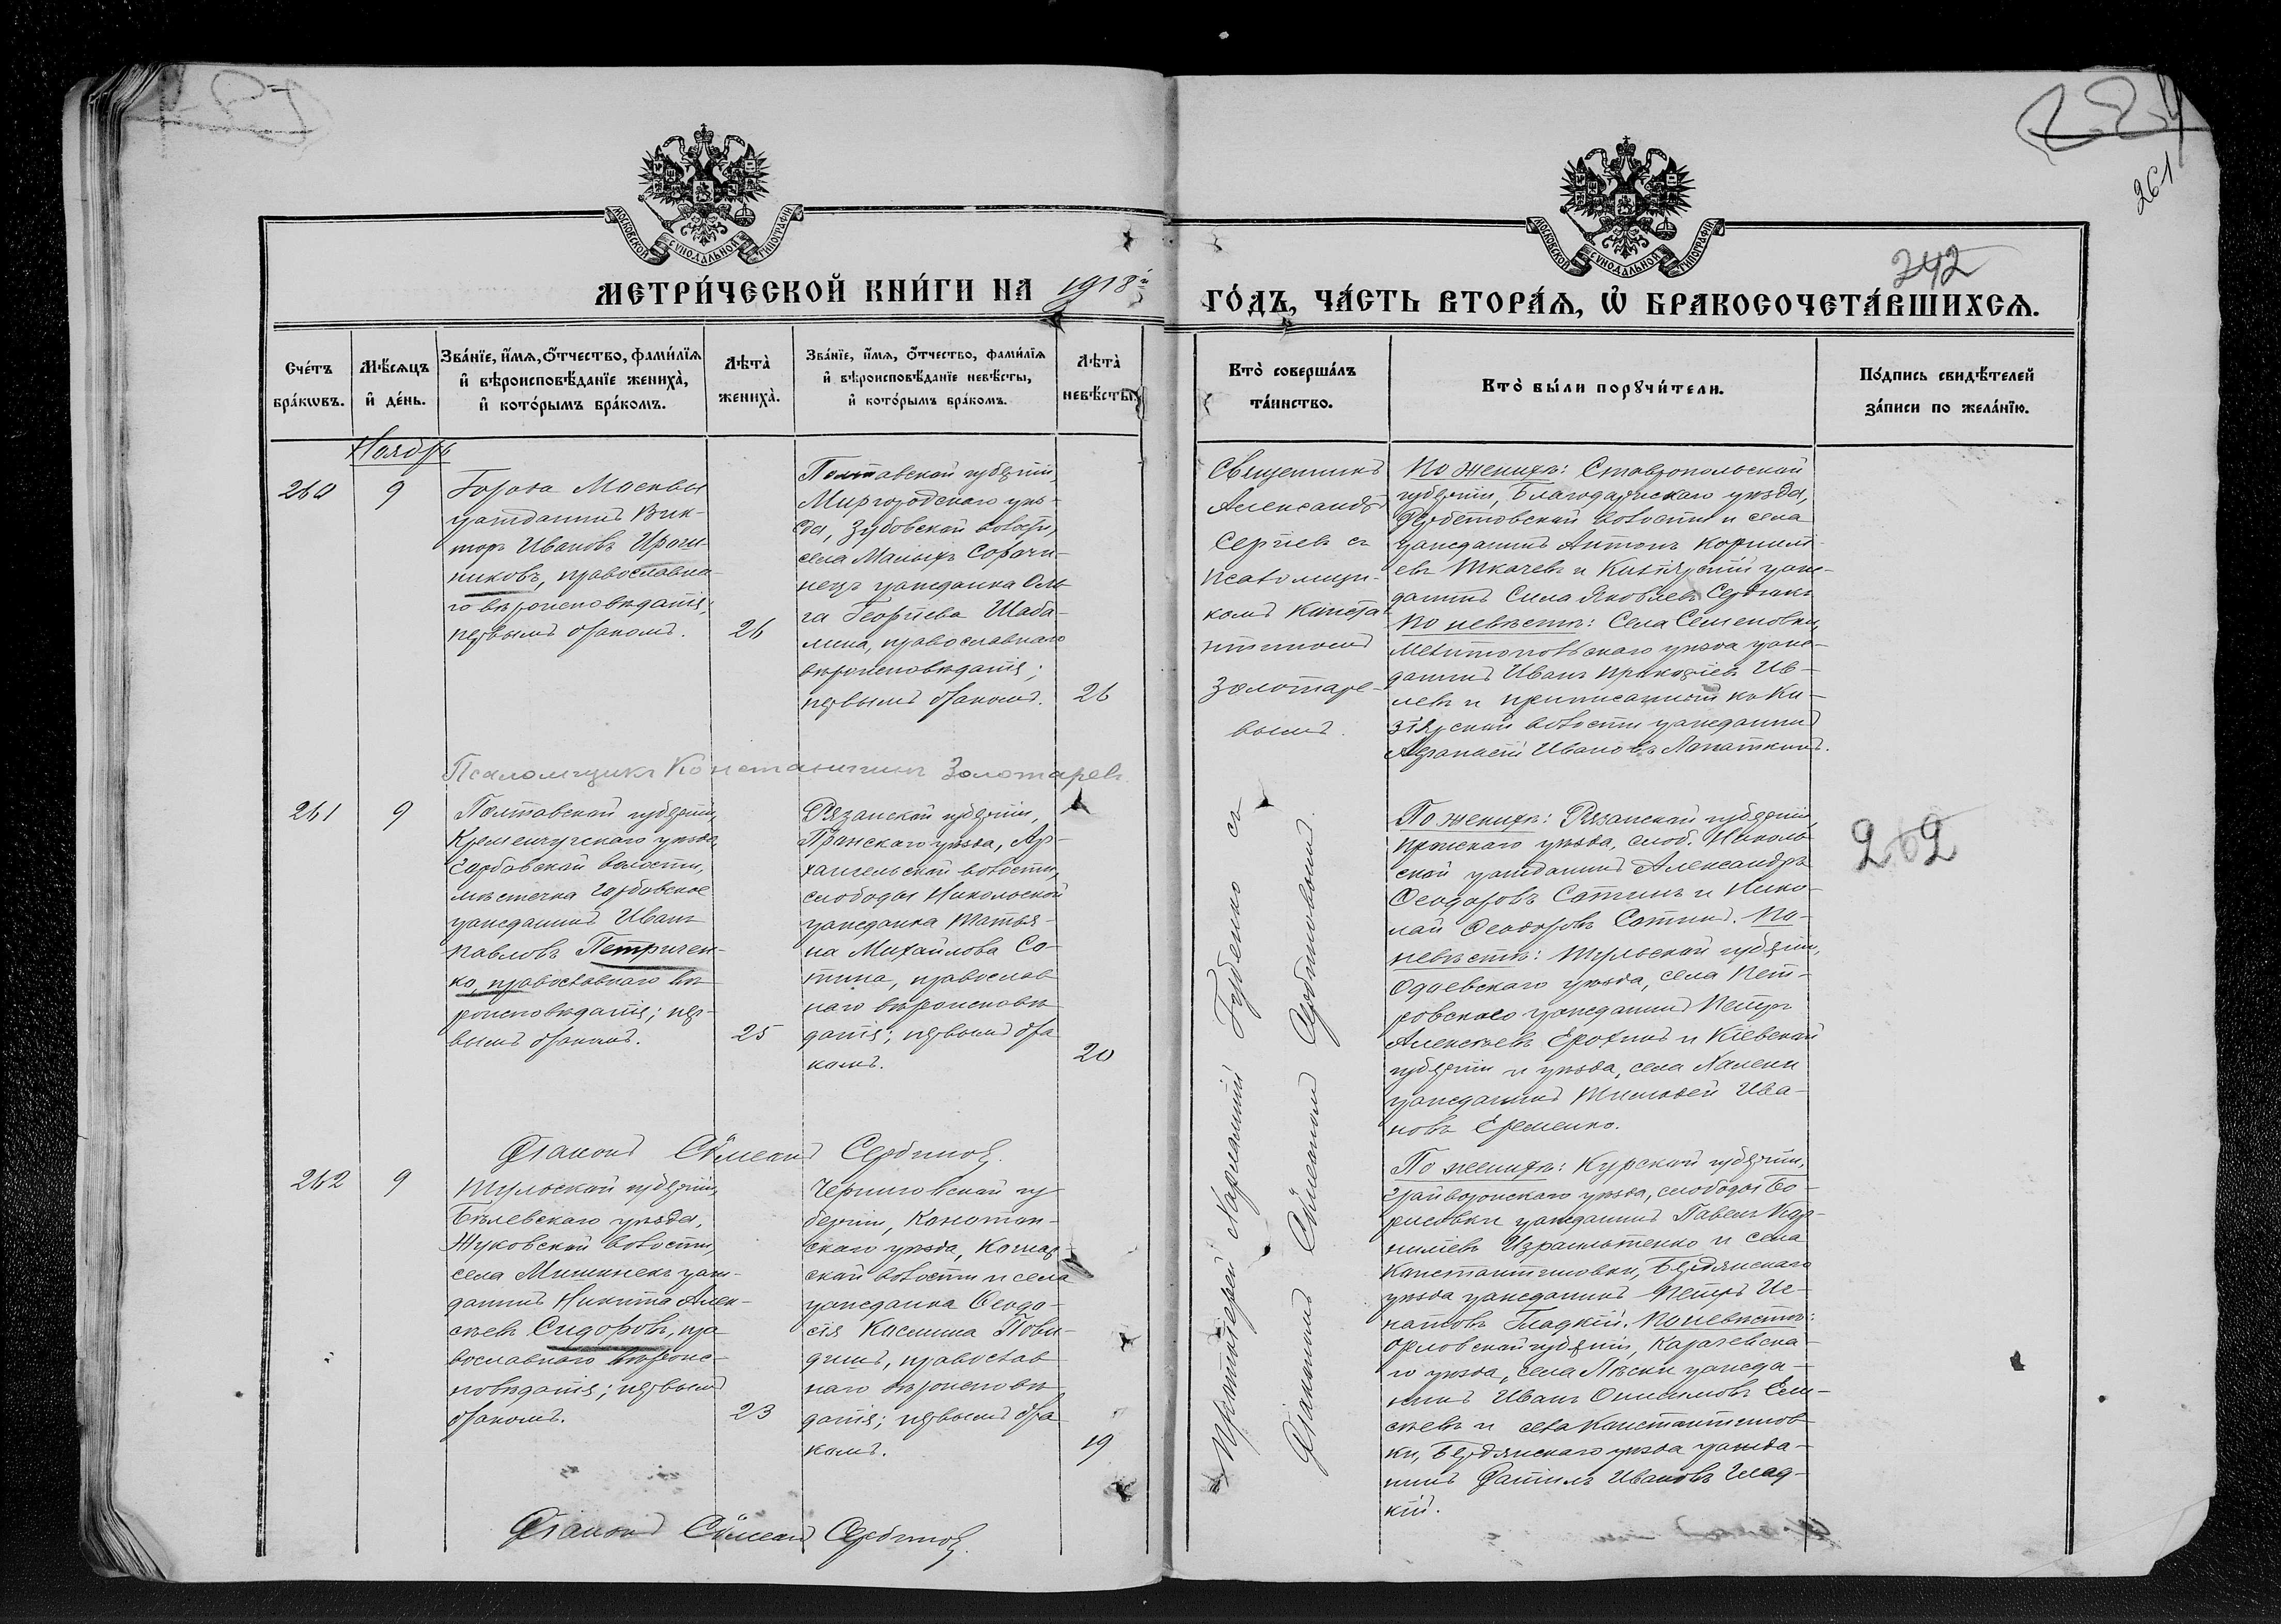 261
242
МОСКОВСКОЙ СѴНОДАЛЬНОЙ ТИПОГРАФІИ
МОСКОВСКОЙ СѴНОДАЛЬНОЙ ТИПОГРАФІИ
МЕТРИ́ЧЕСКОЙ КНИ́ГИ НА 1918й
ГО́ДЪ, ЧА́СТЬ ВТОРА́Ѧ, Ѡ҆ БРАКОСОЧЕТА́ВШИХСѦ.
Сче́тъ
бра́кѡвъ.
Мѣ́сѧцъ
и҆ де́нь.
Зва́нїе, и҆́мѧ, ѻ҆́тчество, фами́лїѧ
и҆ вѣроисповѣ́данїе жениха̀,
и҆ кото́рымъ бра́комъ.
Лѣта̀
жениха̀.
Зва́нїе, и҆́мѧ, ѻ҆́тчество, фами́лїѧ
и҆ вѣроисповѣ́данїе невѣ́сты,
и҆ кото́рымъ бра́комъ.
Лѣта̀
невѣ́сты.
Кто̀ соверша́лъ
та́инство.
Кто̀ бы́ли порꙋчи́тели.
По́дпись свидѣ́телей
за́писи по жела́нїю.
Ноябрь
260
9
Города Москвы
гражданинъ Вик-
торъ Ивановъ
православна-
го вѣроисповѣданія;
первымъ бракомъ.
26
Полтавской губерніи,
Миргородскаго уѣз-
да, Зубовской волости,
села Малыхъ Сорочи-
нецъ гражданка Оль-
га Георгіева Шаба-
лина, православнаго
вѣроисповѣданія;
первымъ бракомъ.
26
Священникъ
Александръ
Сергіевъ съ
псаломщи-
комъ Конста-
нтиномъ
Золотаре-
вымъ.
По женихѣ: Ставропольской
губерніи, Благодарнскаго уѣзда,
волости и села
гражданинъ Антонъ Корнилі-
евъ Ткачевъ и Кизіярскій граж-
данинъ Сила Яковлевъ
По невѣстѣ: Села Семеновки,
Мелитопольскаго уѣзда граж-
данинъ Иванъ Прокофіевъ Ив-
левъ и приписанный къ Ки-
зіярской волости гражданинъ
Афанасій Ивановъ Лопаткинъ.
Псаломщикъ Константинъ Золотаревъ
261
9
Полтавской губерніи,
Кременчугскаго уѣзда,
волости,
мѣстечка
гражданинъ Иванъ
Павловъ Петричен-
ко, православнаго вѣ-
роисповѣданія; пер-
вымъ бракомъ.
25
Рязанской губерніи,
Пронскаго уѣзда, Ар-
хангельской волости,
слободы Никольской
гражданка Татья-
на Михайлова Со-
тина, православ
наго вѣроисповѣ
данія; первымъ бра
комъ.
20
Протоіерей Харлампій Губенко съ
Діакономъ Симеономъ Сербиновымъ.
По женихѣ: Рязанской губерніи,
Пронскаго уѣзда, слоб. Николь-
ской гражданинъ Александръ
Ѳеодоровъ Сотинъ и Нико-
лай Ѳеодоровъ Сотинъ. По
невѣстѣ: Тульской губерніи,
Одоевскаго уѣзда, села Пет-
ровскаго гражданинъ Петръ
Алексѣевъ Ерохинъ и Кіевской
губерніи и уѣзда, села Халепи
гражданинъ Тимоѳей Ива-
новъ Еременко.
262
Діаконъ Симеонъ Сербиновъ.
262
9
Тульской губерніи,
Бѣлевскаго уѣзда,
Жуковской волости,
села граж-
данинъ Никита Алек-
сѣевъ Сидоровъ, пра
вославнаго вѣроис-
повѣданія; первымъ
бракомъ.
23
Черниговской гу
берніи, Конотоп-
скаго уѣзда,
ской волости и села
гражданка Ѳеодо-
сія Космина
православ
наго вѣроисповѣ
данія; первымъ бра
комъ.
19
По женихѣ: Курской губерніи,
Грайворонскаго уѣзда, слободы Бо-
рисовки гражданинъ Павелъ Кор-
ниліевъ и села
Константиновки, Бердянскаго
уѣзда гражданинъ Петръ Иг-
натовъ Гладкій. По невѣстѣ:
Орловской губерніи, Карачевска-
го уѣзда, села Лѣски гражда-
нинъ Иванъ Онисимовъ Ели-
сѣевъ и села Константинов-
ки, Бердянскаго уѣзда гражда-
нинъ Даніилъ Ивановъ Глад-
кій.
Діаконъ Симеонъ Сербиновъ.